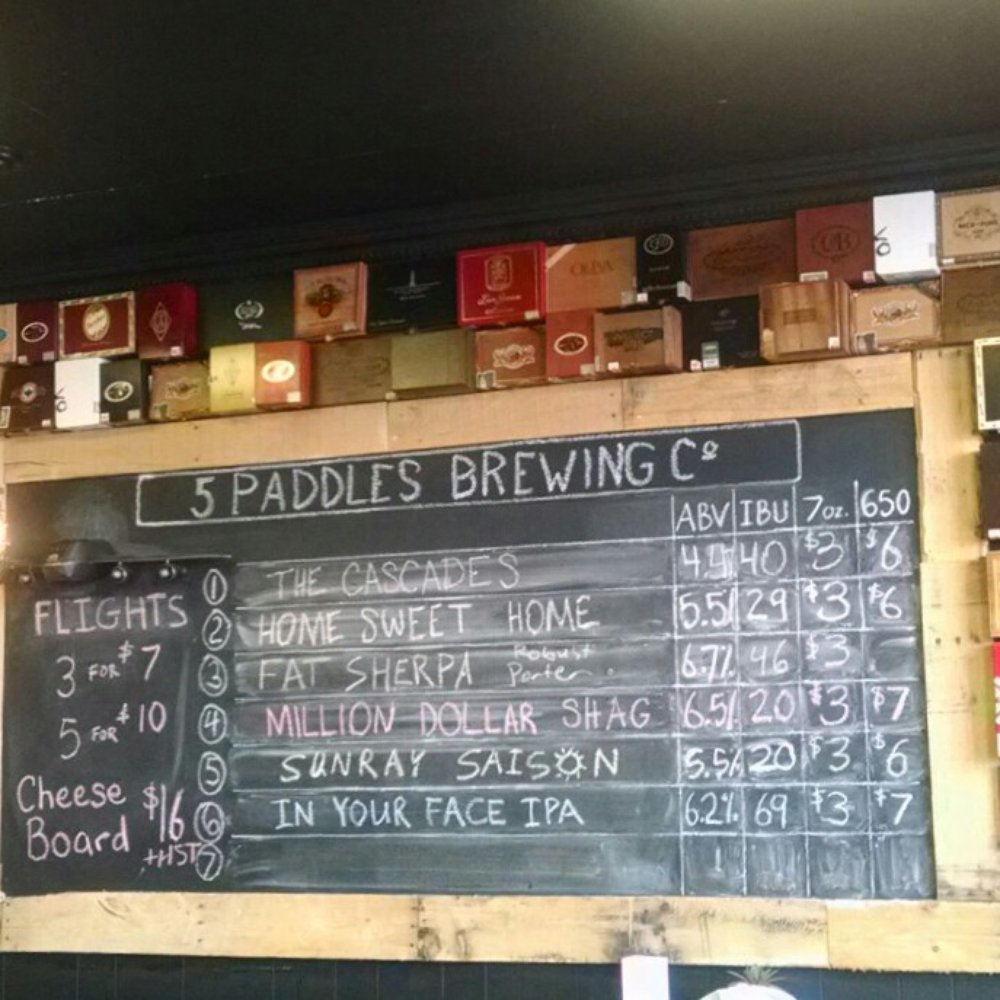 OLIVA
UB
5 PADDLES BREWING Cº
ABV IBU 7oz. 650
1 THE CASCADES 4.9% 40 $3 $6
2 HOME SWEET HOME 5.5% 29 $3 $6
3 FAT SHERPA Robust Porter 6.7% 46 $3
4 MILLION DOLLAR SHAG 6.5% 20 $3 $7
5 SUNRAY SAISON 5.5% 20 $3 $6
6 IN YOUR FACE IPA 6.2% 69 $3 $7
7
FLIGHTS
3 FOR $7
5 FOR $10
Cheese $16
Board +HST